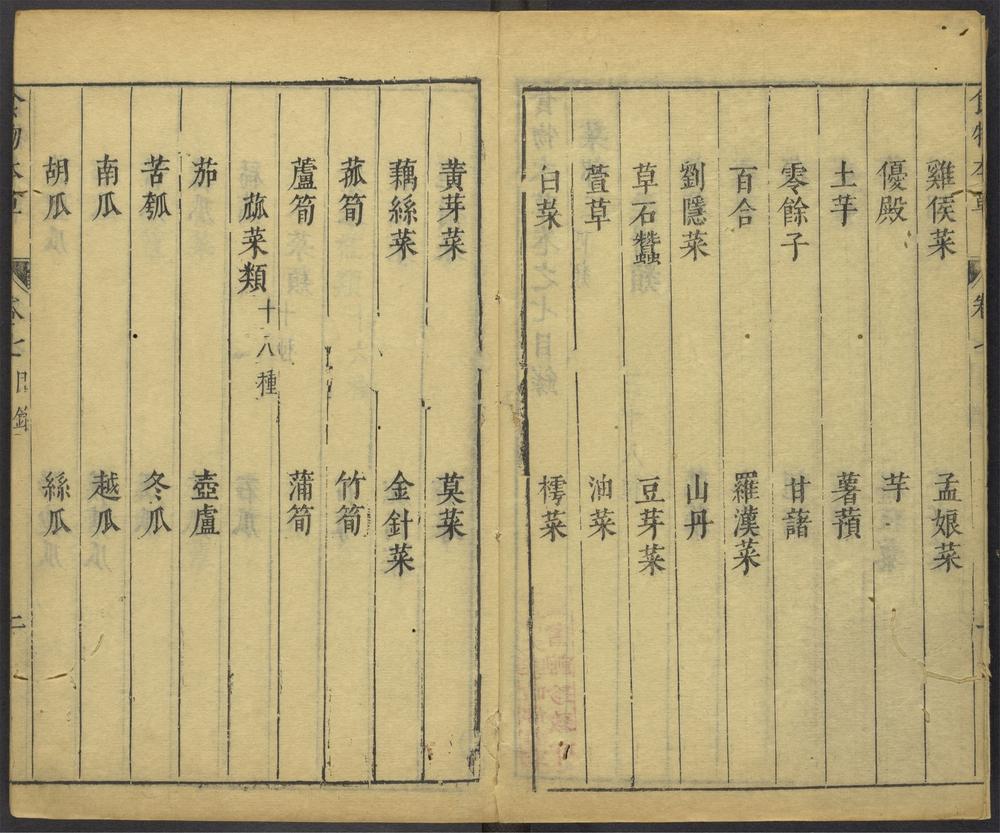 雞侯菜 孟娘菜
優殿 芋
土芋 薯蕷
零餘子 甘藷
百合 羅漢菜
劉隱菜 山丹
草石蠶 豆芽菜
萱草 油菜
白菜 樗菜
黃芽菜 莫菜
藕絲菜 金針菜
菰筍 竹筍
蘆筍 蒲筍
蓏菜類十八種
茄 壺盧
苦瓠 冬瓜
南瓜 越瓜
胡瓜 絲瓜
食物本草 卷七目錄 二